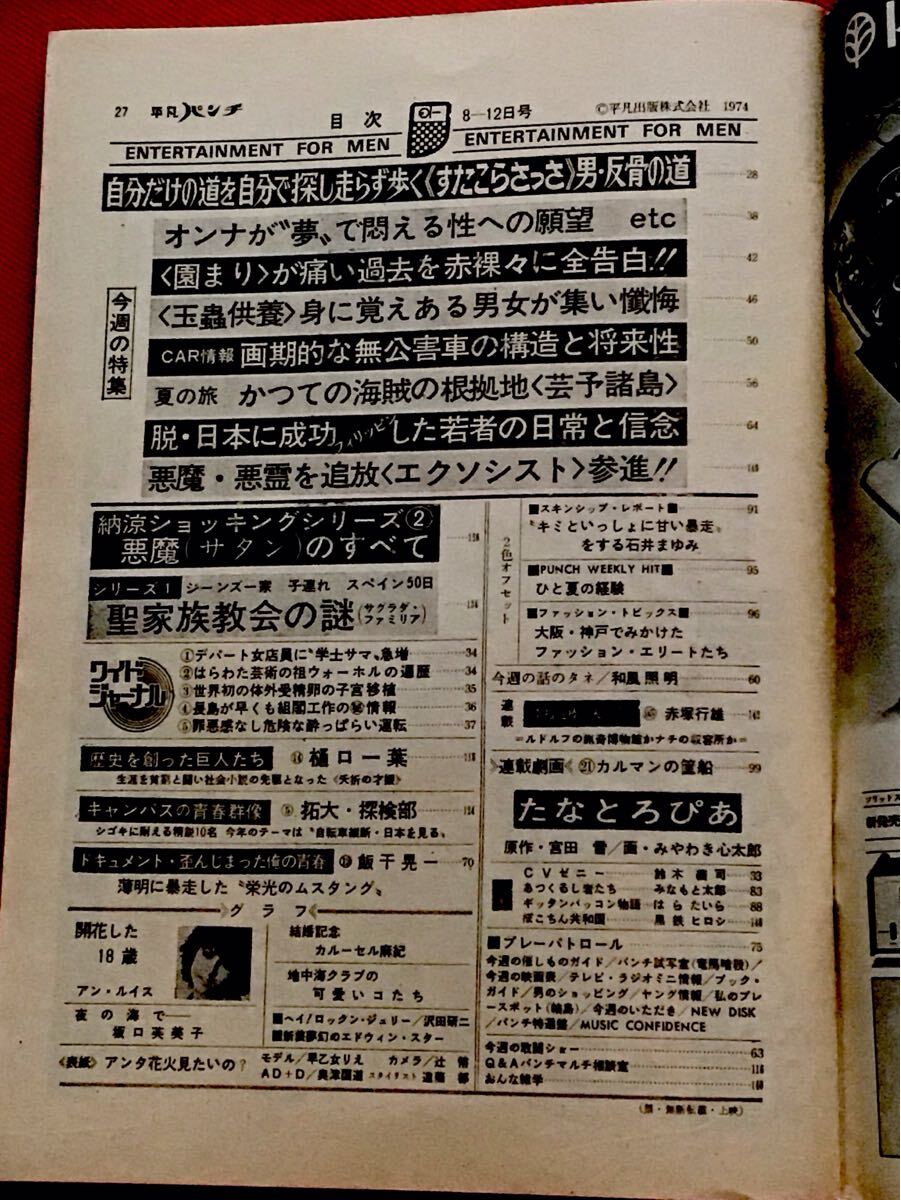 27 平凡パンチ
目次
8—12日号
©平凡出版株式会社 1974
ENTERTAINMENT FOR MEN
ENTERTAINMENT FOR MEN
自分だけの道を自分で探し走らず歩く《すたこらさっさ》男・反骨の道 28
今週の特集
オンナが〝夢〟で悶える性への願望 etc 38
〈園まり〉が痛い過去を赤裸々に全告白!! 42
〈玉蟲供養〉身に覚えある男女が集い懺悔 46
CAR情報 画期的な無公害車の構造と将来性 50
夏の旅 かつての海賊の根拠地〈芸予諸島〉 56
脱・日本に成功フィリッピンした若者の日常と信念 64
悪魔・悪霊を追放〈エクソシスト〉参進!!
納涼ショッキングシリーズ②
悪魔(サタン)のすべて
シリーズ1 ジーンズ一家 子連れ スペイン50日
聖家族教会の謎(サグラダ・ファミリア)
ワイドジャーナル
①デパート女店員に〝学士サマ〟急増 34
②はらわた芸術の祖ウォーホルの遍歴 34
③世界初の体外受精卵の子宮移植 35
④長島が早くも組閣工作の㊙情報 36
⑤罪悪感なし危険な酔っぱらい運転 37
歴史を創った巨人たち ⑭ 樋口一葉
生涯を貧窮と闘い社会小説の先駆となった《夭折の才媛》
キャンパスの青春群像 ⑤ 拓大・探検部
シゴキに耐える精鋭10名 今年のテーマは〝自転車縦断・日本を見る〟
ドキュメント・歪んじまった俺の青春 ⑲ 飯干晃一 70
薄明に暴走した〝栄光のムスタング〟
グラフ
開花した
18歳
アン・ルイス
夜の海で—
坂口美美子
結婚記念
カルーセル麻紀
地中海クラブの
可愛いコたち
■ヘイ!ロックン・ジュリー/沢田研二
■新装夢幻のエドウィン・スター
《表紙》 アンタ花火見たいの?
モデル/早乙女りえ カメラ/辻
AD+D/奥津国道 スタイリスト 遠藤
2色オフセット
■スキンシップ・レポート 91
〝キミといっしょに甘い暴走〟
をする石井まゆみ
■PUNCH WEEKLY HIT■ 95
ひと夏の経験
■ファッション・トピックス■ 96
大阪・神戸でみかけた
ファッション・エリートたち
今週の話のタネ/和風照明 60
連載
赤塚行雄
=ルドルフの猟奇博物館かナチの収容所か=
《連載劇画》㉑カルマンの筐船 99
たなとろぴあ
原作・宮田 雪/画・みやわき心太郎
CVゼニー 鈴木義司 33
あつくるし者たち みなもと太郎 83
ギッタンバッコン物語 はらたいら 88
ぽこちん共和国 黒鉄ヒロシ
■プレーパトロール 75
今週の催しものガイド/パンチ試写室(竜馬暗殺)/
今週の映画表/テレビ・ラジオミニ情報/ブック・
ガイド/男のショッピング/ヤング情報/私のプレ
ースポット(輪島)/今週のいただき/NEW DISK
/パンチ特選盤/MUSIC CONFIDENCE
今週の敢闘ショー 63
Q&Aパンチマルチ相談室
おんな雑学
(禁・無断転載・上映)